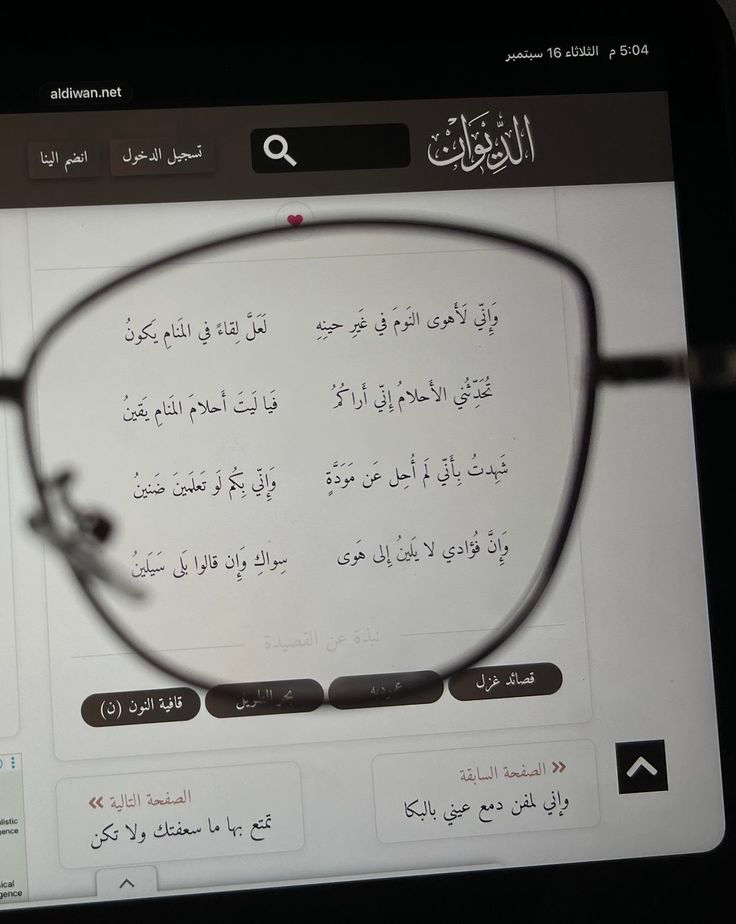 5:04 م الثلاثاء 16 سبتمبر
aldiwan.net
الدِّيوَانْ
تسجيل الدخول
انضم الينا
وَإِنّي لَأَهوى النَومَ في غَيرِ حينِهِ لَعَلَّ لِقاءً في المَنامِ يَكونُ
تُحَدِّثُني الأَحلامُ إِنّي أَراكُمُ فَيا لَيتَ أَحلامَ المَنامِ يَقينُ
شَهِدتُ بِأَنّي لَم أُحِل عَن مَوَدَّةٍ وَإِنّي بِكُم لَو تَعلَمينَ ضَنينُ
وَإِنَّ فُؤادي لا يَلينُ إِلى هَوى سِواكِ وَإِن قالوا بَلى سَيَلينُ
نبذة عن القصيدة
قصائد غزل
عموديه
بحر الطويل
قافية النون (ن)
الصفحة السابقة
وإني لمفن دمع عيني بالبكا
الصفحة التالية
تمتع بها ما سعفتك ولا تكن